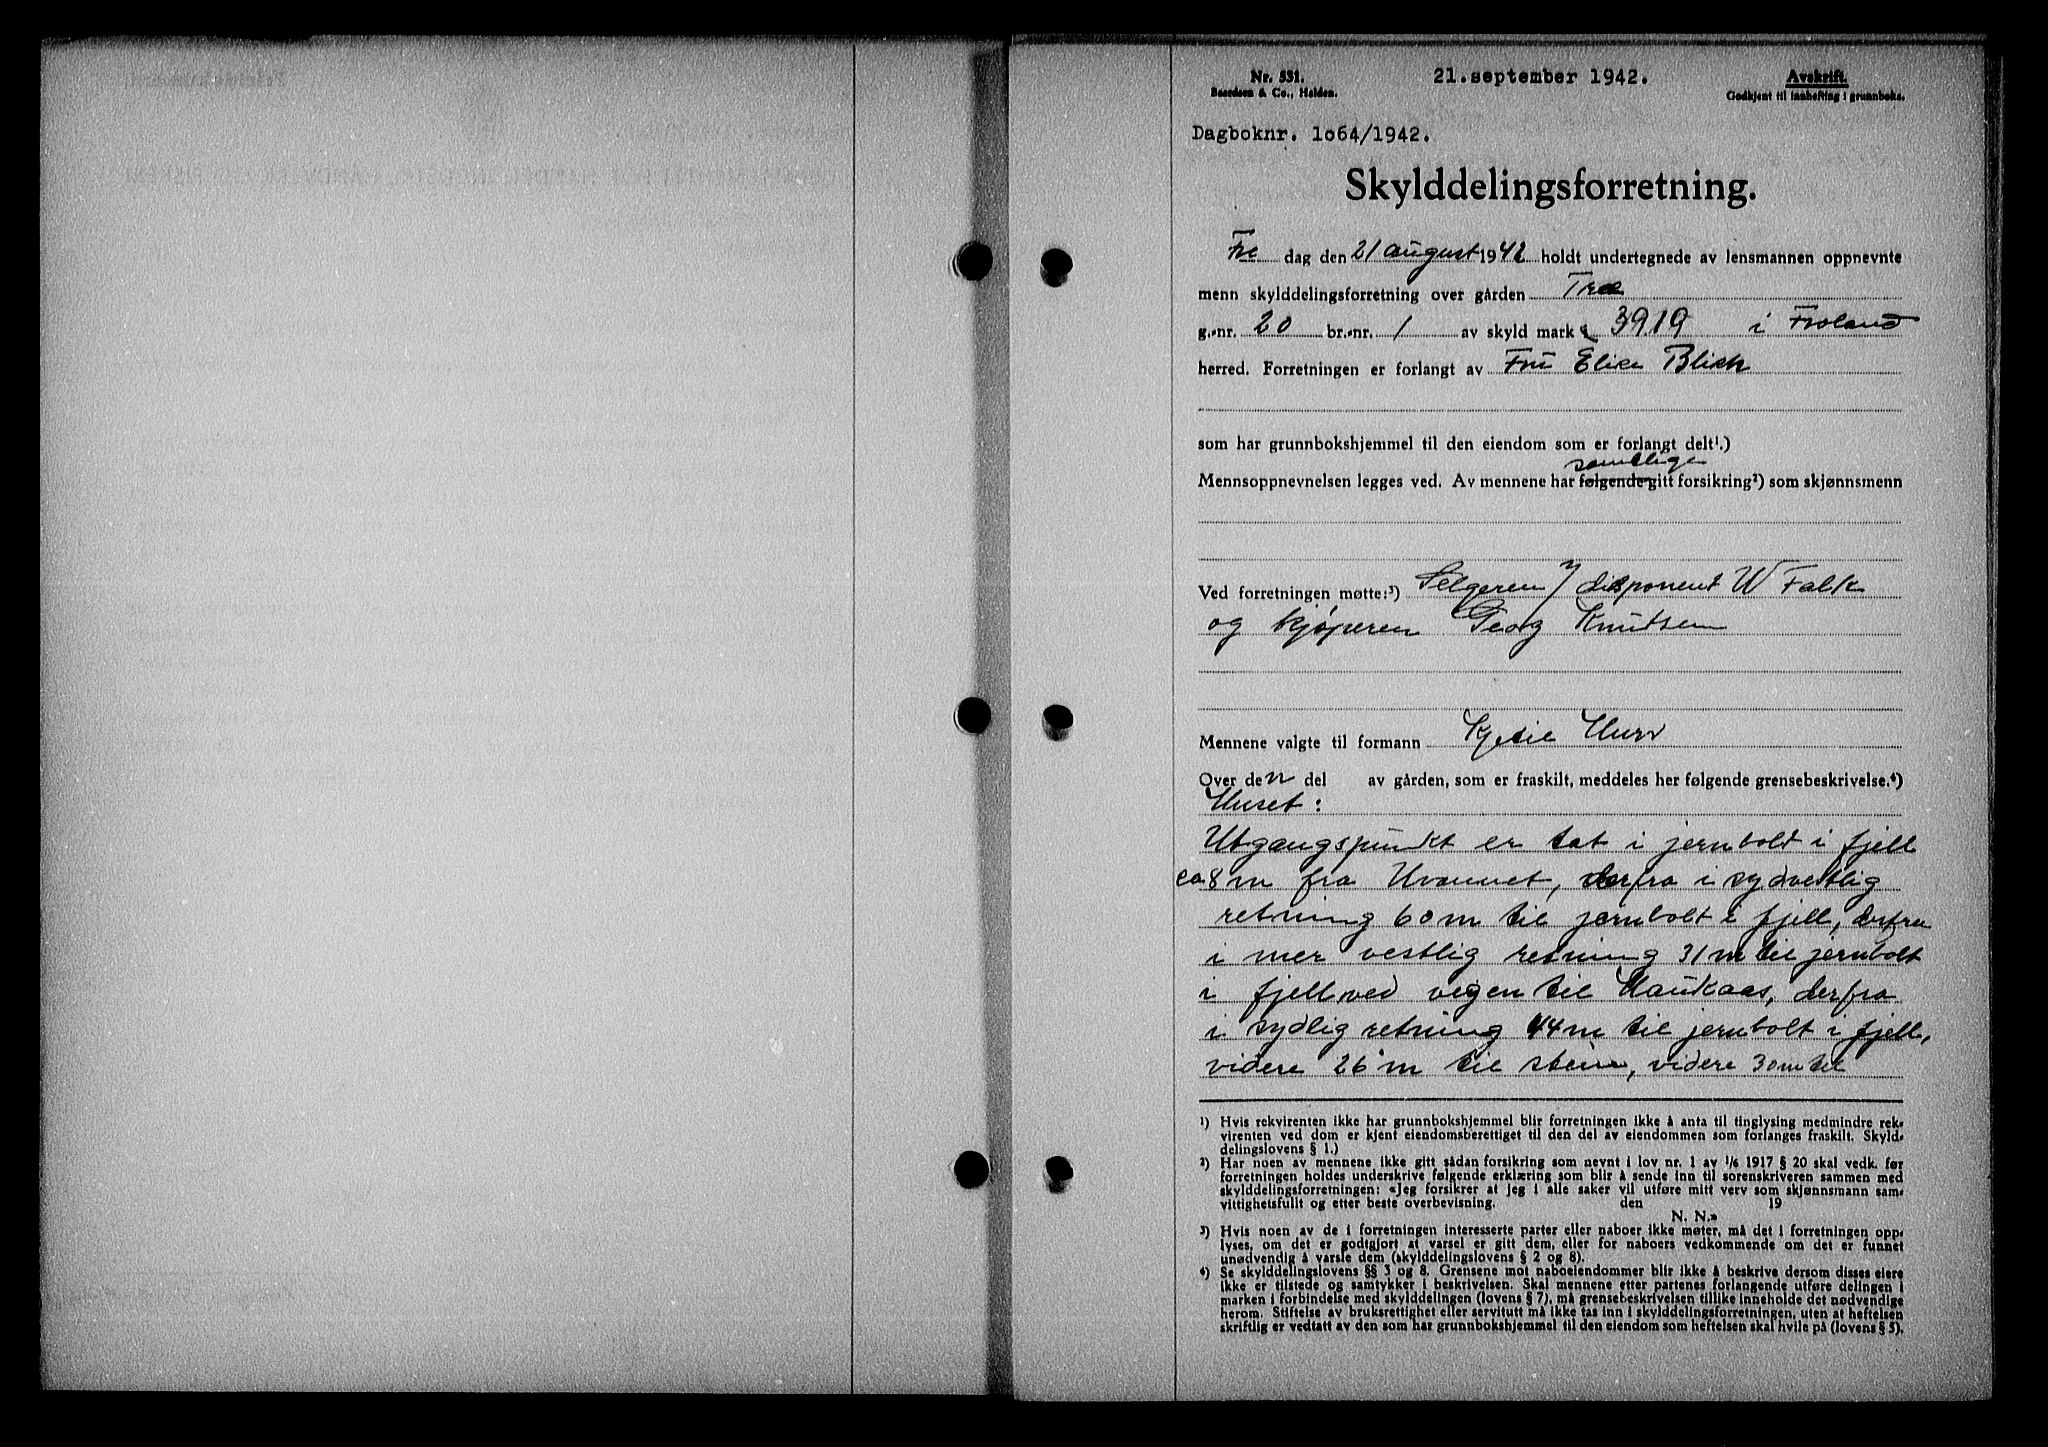 Nr. 531. 21.september 1942. Avskrift.
Baardsen & Co., Halden. Godkjent til innhefting i grunnboka.
Dagboknr. 1o64/1942.
Skylddelingsforretning.
Fre dag den 21 august 1942 holdt undertegnede av lensmannen oppnevnte
menn skylddelingsforretning over gården Træ
g.-nr. 20 br.-nr. 1 av skyld mark 39.19 i Froland
herred. Forretningen er forlangt av Fru Elise Blich
som har grunnbokshjemmel til den eiendom som er forlangt delt¹.)
samtlige
Mennsoppnevnelsen legges ved. Av mennene har følgende gitt forsikring²) som skjønnsmenn
Ved forretningen møtte:³) Selgeren v/ disponent W Falk
og kjøperen Georg Knutsen
Mennene valgte til formann Kjetil Hurv
Over den del av gården, som er fraskilt, meddeles her følgende grensebeskrivelse.⁴)
Huset:
Utgangspunkt er tat i jernbolt i fjell
ca 8 m fra Uvannet, derfra i sydvestlig
retning 60 m til jernbolt i fjell, derfra
i mer vestlig retning 31 m til jernbolt
i fjell ved vegen til Haukaas, derfra
i sydlig retning 44 m til jernbolt i fjell,
videre 26 m til stein, videre 30 m til
¹) Hvis rekvirenten ikke har grunnbokshjemmel blir forretningen ikke å anta til tinglysing medmindre rek-
virenten ved dom er kjent eiendomsberettiget til den del av eiendommen som forlanges fraskilt. Skyld-
delingslovens § 1.)
²) Har noen av mennene ikke gitt sådan forsikring som nevnt i lov nr. 1 av 1/6 1917 § 20 skal vedk. før
forretningen holdes underskrive følgende erklæring som blir å sende inn til sorenskriveren sammen med
skylddelingsforretningen: «Jeg forsikrer at jeg i alle saker vil utføre mitt verv som skjønnsmann sam-
vittighetsfullt og etter beste overbevisning. den 19
N. N.»
³) Hvis noen av de i forretningen interesserte parter eller naboer ikke møter, må det i forretningen opp-
lyses, om det er godtgjort at varsel er gitt dem, eller for naboers vedkommende om det er funnet
unødvendig å varsle dem (skylddelingslovens § 2 og 8).
⁴) Se skylddelingslovens §§ 3 og 8. Grensene mot naboeiendommer blir ikke å beskrive dersom disses eiere
ikke er tilstede og samtykker i beskrivelsen. Skal mennene etter partenes forlangende utføre delingen i
marken i forbindelse med skylddelingen (lovens § 7), må grensebeskrivelsen tillike inneholde det nødvendige
herom. Stiftelse av bruksrettighet eller servitutt må ikke tas inn i skylddelingsforretningen, uten at heftelsen
skriftlig er vedtatt av den som har grunnbokshjemmel til den eiendom som heftelsen skal hvile på (lovens § 5).